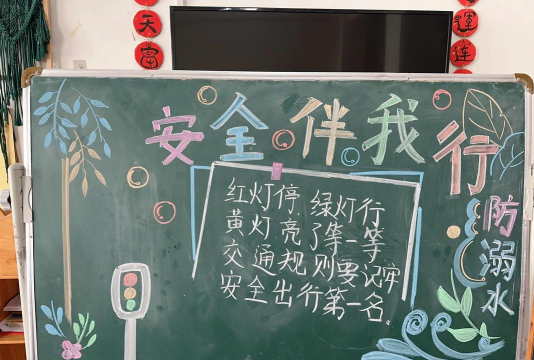 天
富
運
連
安全伴我行
红灯停 绿灯行
黄灯亮了等一等
交通规则要记牢
安全出行第一名。
防溺水